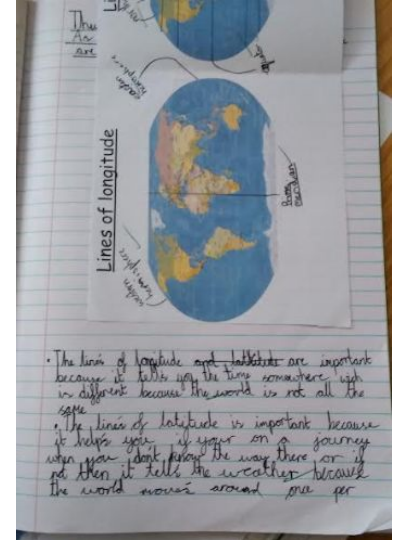 Thu
An
are
Lines of longitude
eastern
hemisphere
Prime
meridian
western
hemisphere
• The lines of longitude and latitude are important
because it tells you the time somewhere wich
is different because the world is not all the
same
• The lines of latitude is important because
it helps you if your on a journey
when you dont know the way there or if
not then it tells the weather because
the world moves around one per